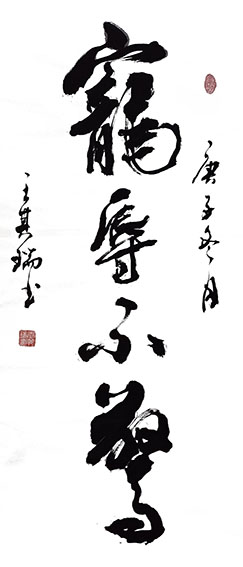 庚子冬月
寵辱不驚
王其瑞書